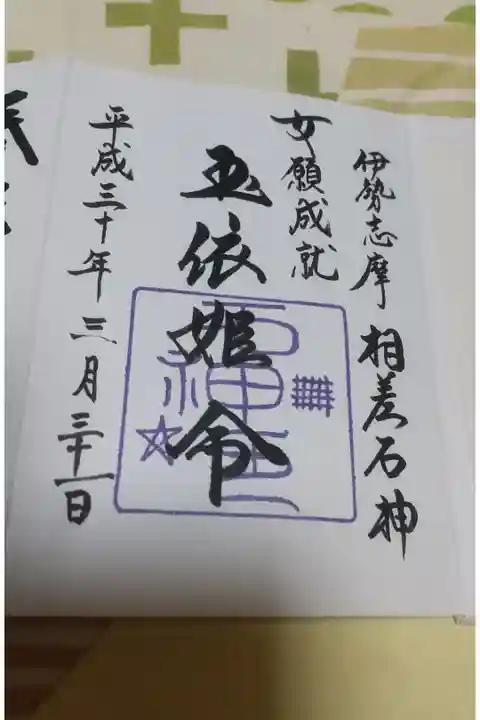 伊勢志摩 相差石神
女願成就
玉依姫命
平成三十年三月三十一日
石神